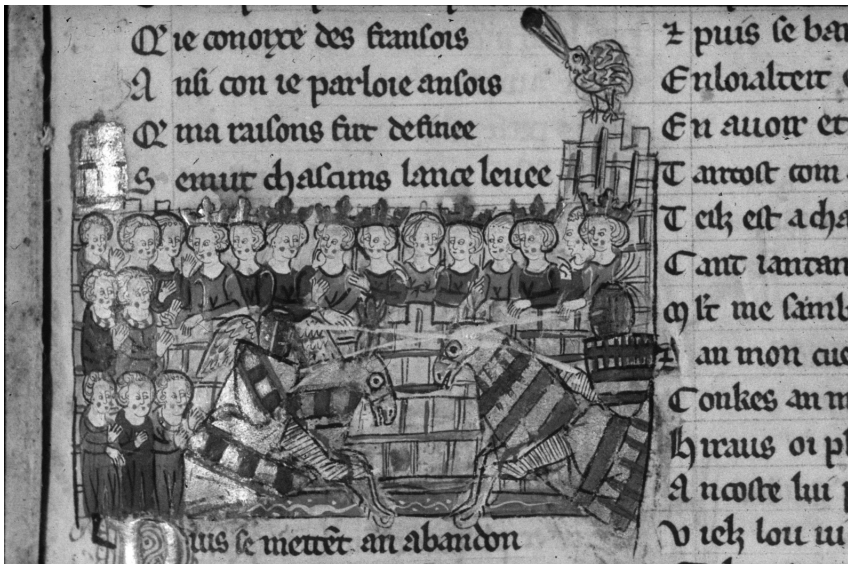 Q'ie conoixe des fransois
Ansi con ie parloie ansois
Q' ma raisons fut definee
Semut chascuns lance levee
Puis se mettēt an abandon
z puis se bar
Enloialteit
En avoir et
Tantost com
Teilz est a cha
Cant iantan
Mlt me samb
an mon cue
Conkes an m
Hiraus oi pl
Ancoste lui p
Vielz lou